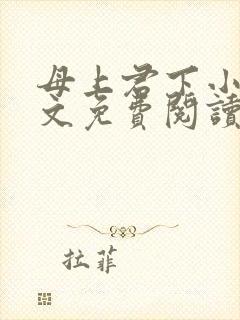 母上君下小
文免費閱讀
拉菲